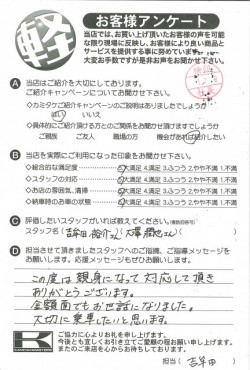 軽
お客様アンケート
当店では、お買い上げ頂いたお客様の声を可能
な限り現場に反映し、お客様により良い商品と
サービスを提供する事に努めています。
大変お手数ですが是非お声をお聞かせ下さい。
A 当店はご紹介を大切にしております。
ご紹介キャンペーンについてお聞かせ下さい。
◇カミタケご紹介キャンペーンのご説明はありましたでしょうか
はい いいえ
◇具体的にご紹介頂ける方とのご関係をお聞かせ下さいますでしょうか
ご親戚 ご親族 お友達 職場の方 機会があれば紹介したい
B 当店を実際にご利用になった印象をお聞かせ下さい。
◇総合的な満足度 5.大満足 4.満足 3.ふつう 2.やや不満 1.不満
◇スタッフの対応 5.大満足 4.満足 3.ふつう 2.やや不満 1.不満
◇お店の雰囲気、清掃 5.大満足 4.満足 3.ふつう 2.やや不満 1.不満
◇納車時のお車の状態 5.大満足 4.満足 3.ふつう 2.やや不満 1.不満
C 評価したいスタッフがいれば教えてください。(複数回答可)
スタッフ名
D 担当させて頂きましたスタッフへのご指摘、ご指導メッセージを
お願いします。応援メッセージもぜひお願いします。
この度は親身になって対応して頂き
ありがとうございます。
金額面でもお世話になりました。
大切に乗車したいと思います。
K
ご協力に心よりお礼を申し上げます。
今後とも宜しくお引き立てご愛顧の程お願い申し上げます。
またのご来店を心からお待ちしております。
担当( 吉牟田 )